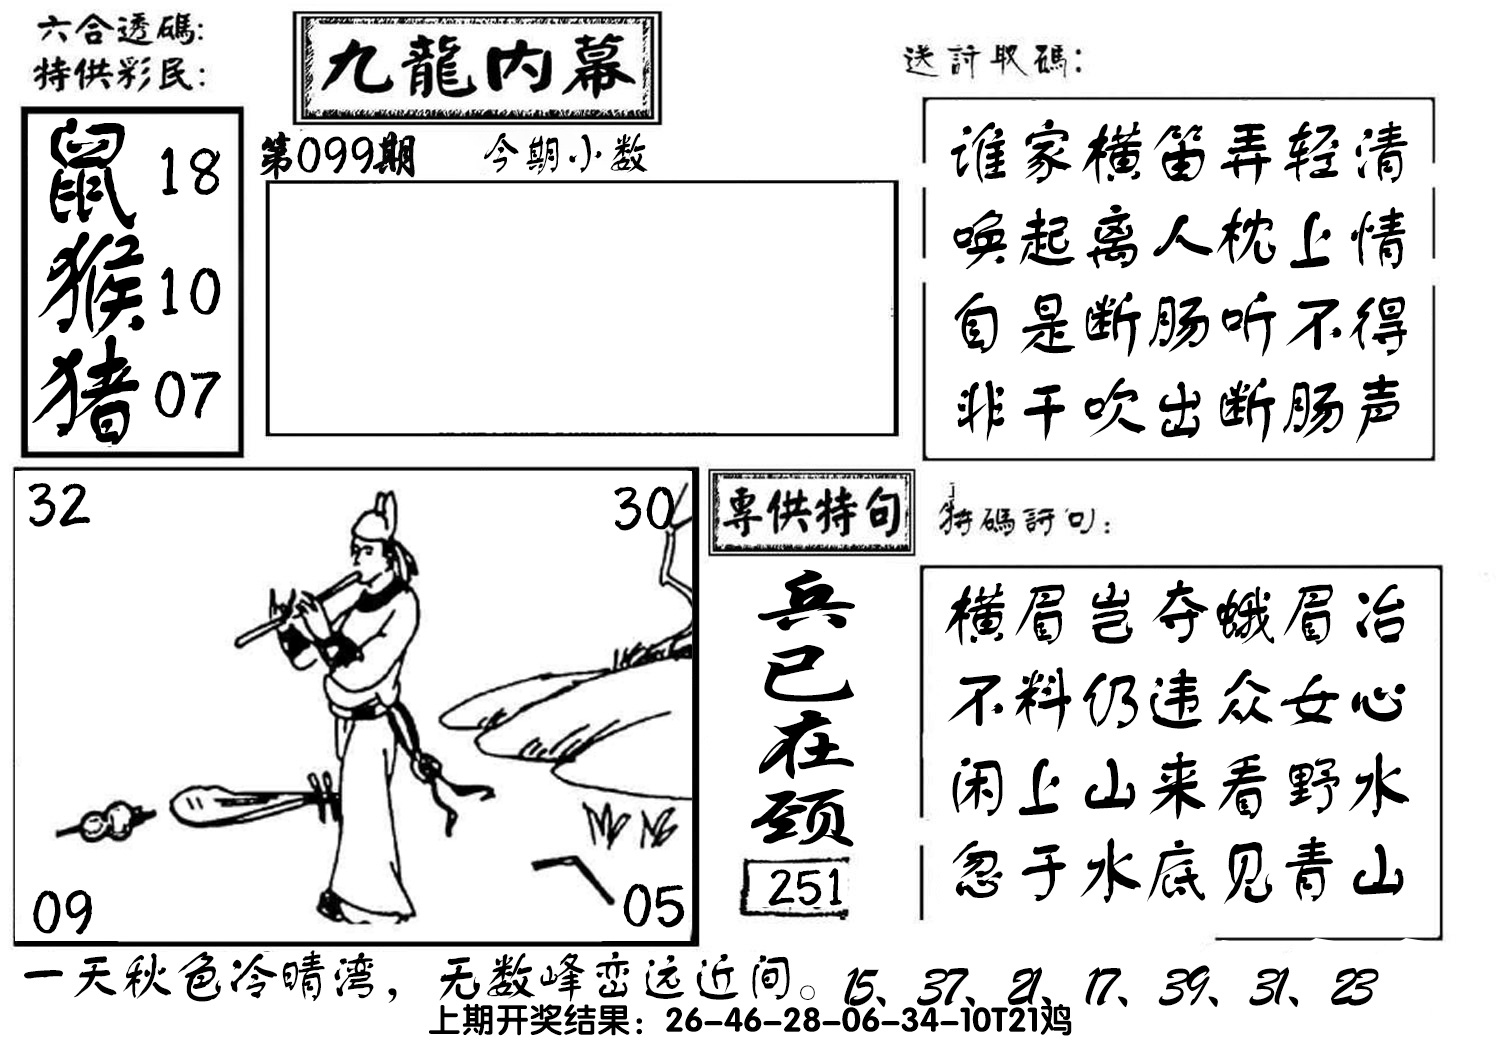 六合透碼:
特供彩民:
鼠 18
猴 10
猪 07
九龍内幕
第099期 今期小数
送討取碼:
谁家横笛弄轻清
唤起离人枕上情
自是断肠听不得
非干吹出断肠声
32
30
09
05
專供特句
兵已在颈
251
特碼討句:
横眉岂夺蛾眉冶
不料仍违众女心
闲上山来看野水
忽于水底见青山
一天秋色冷晴湾，无数峰峦远近间。15、37、21、17、39、31、23
上期开奖结果：26-46-28-06-34-10T21鸡